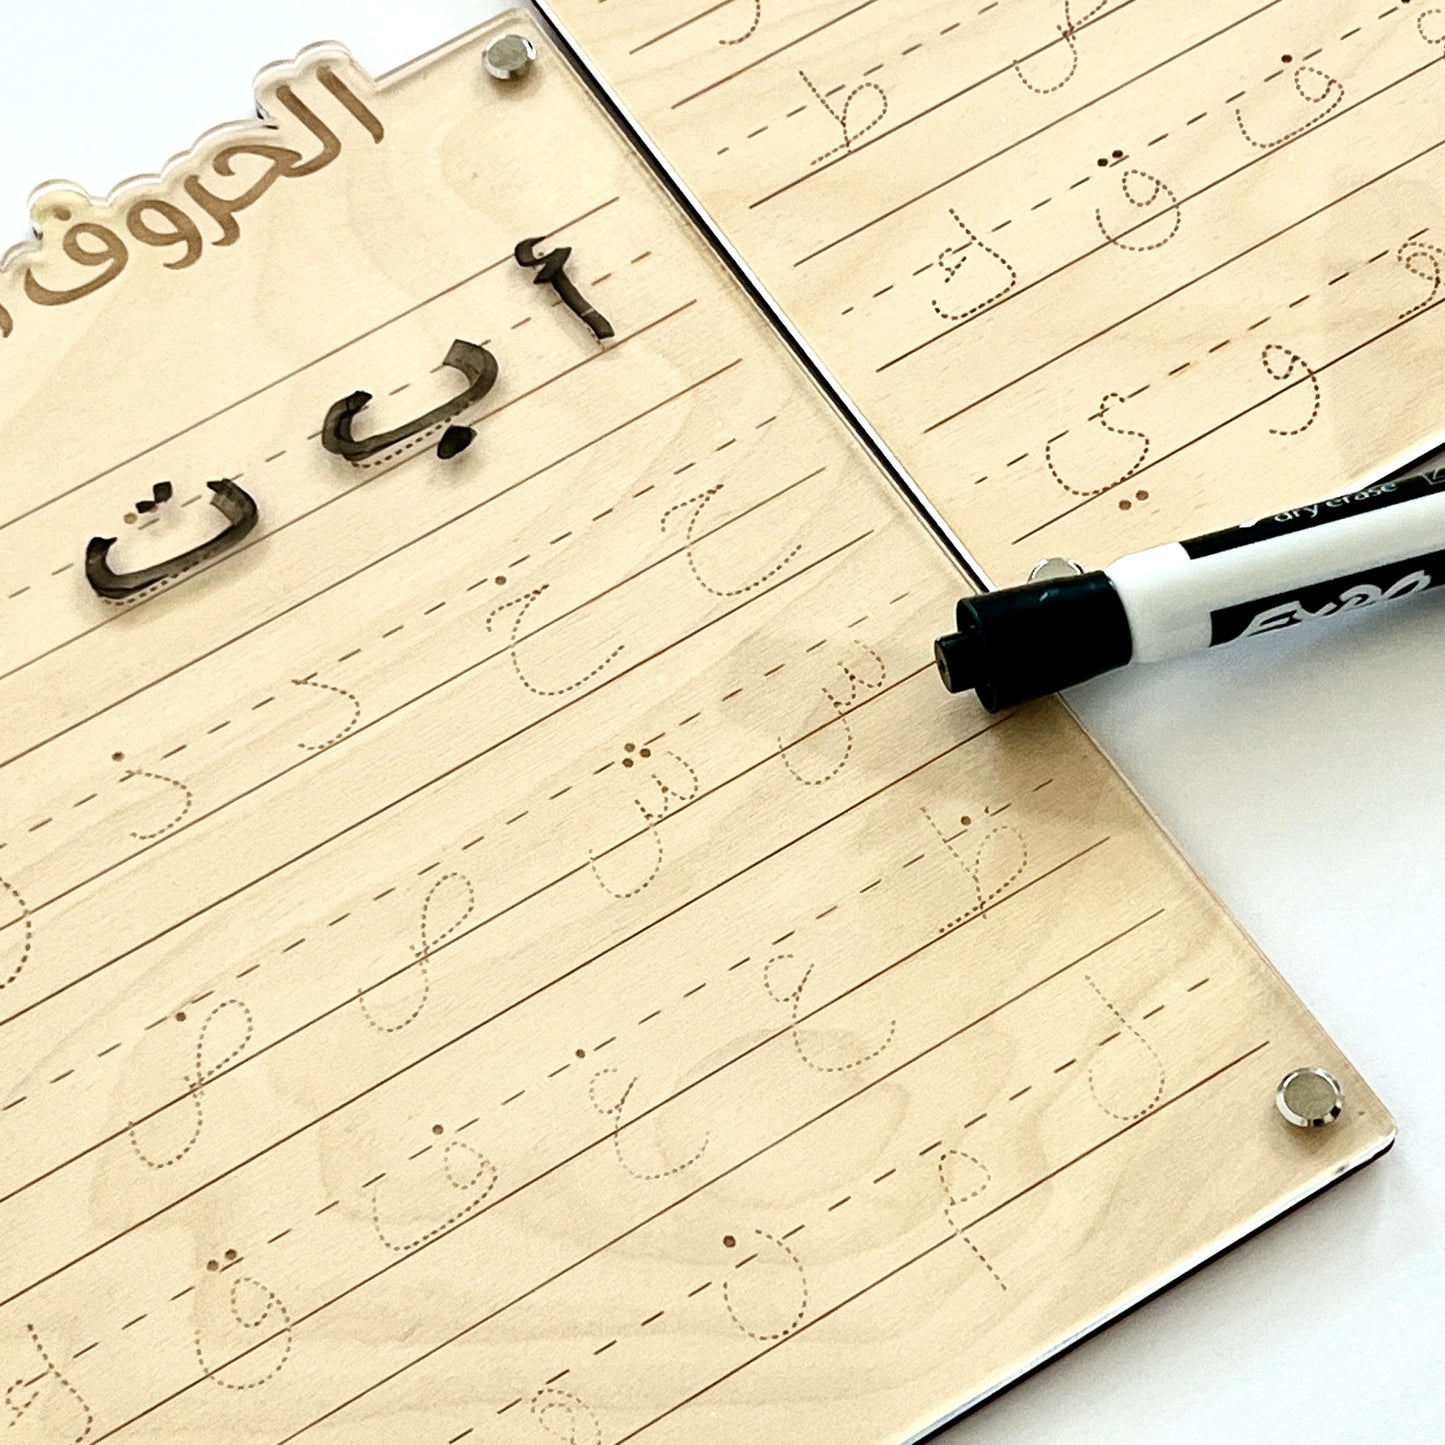 الحروف
أ ب ت
ح خ د ذ
س ش ص ض
ظ ع غ ف ق ك
ل م ن
ط
ف ق ك
و ي
dry erase
Expo